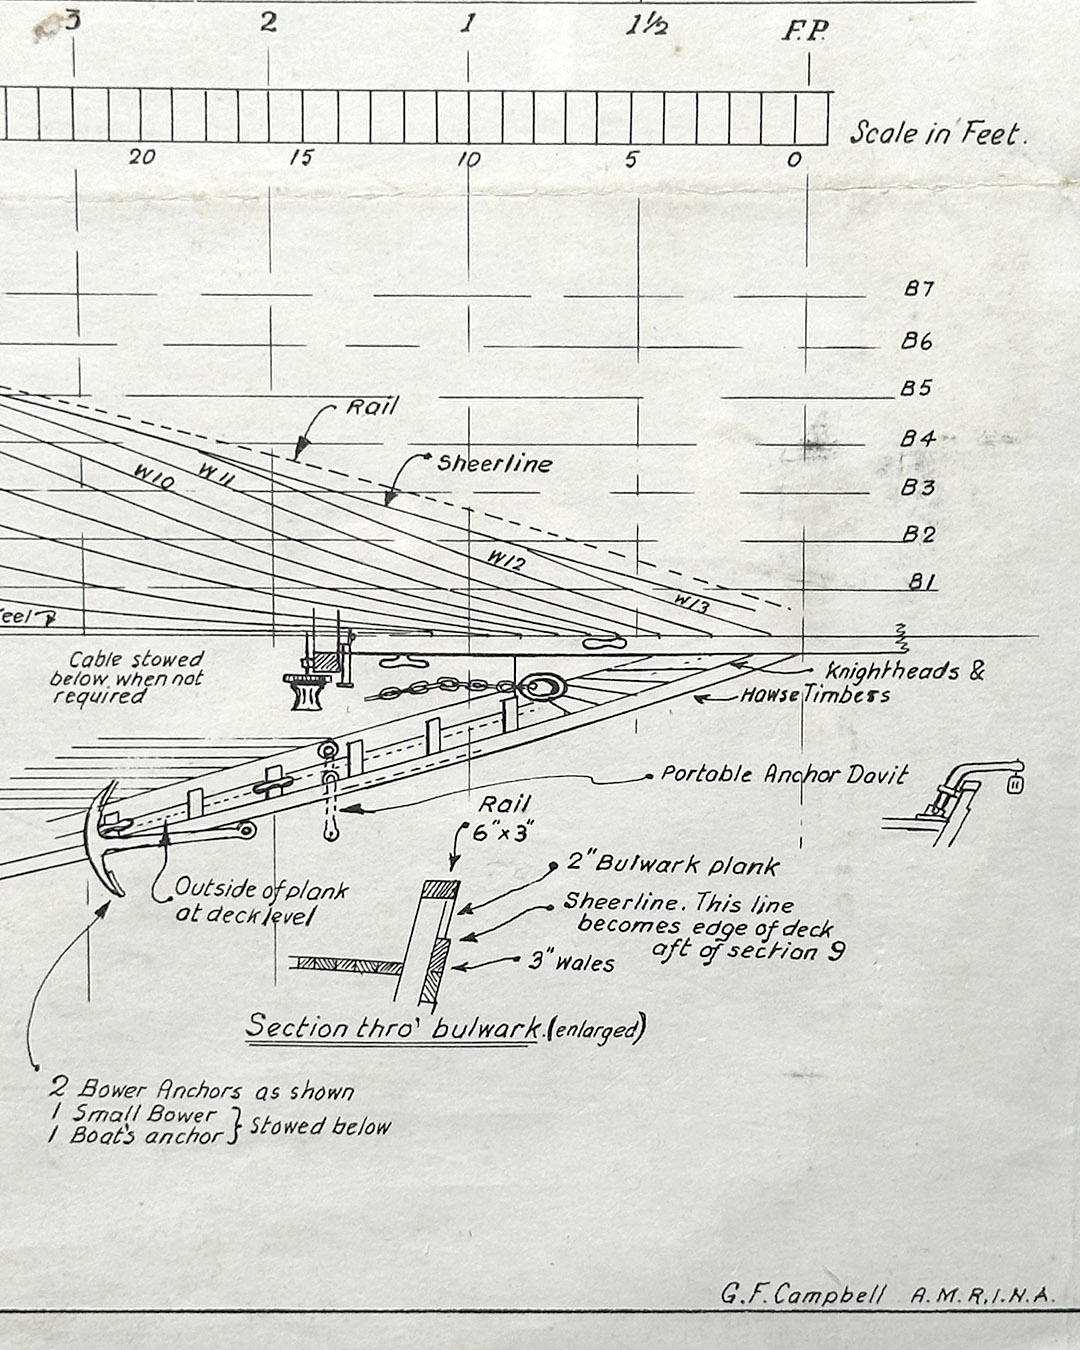 3 2 1 1½ F.P.
20 15 10 5 0 Scale in Feet.
B7
B6
B5
Rail
B4
Sheerline
W10 W11
B3
B2
W12
B1
W13
Cable stowed
below when not
required
Knightheads &
Hawse Timbers
Portable Anchor Davit
Rail
6"x3"
2" Bulwark plank
Outside of plank
at deck level
Sheerline. This line
becomes edge of deck
aft of section 9
3" Wales
Section thro' bulwark. (enlarged)
2 Bower Anchors as shown
1 Small Bower
1 Boat's anchor } Stowed below
G.F. Campbell A.M.R.I.N.A.